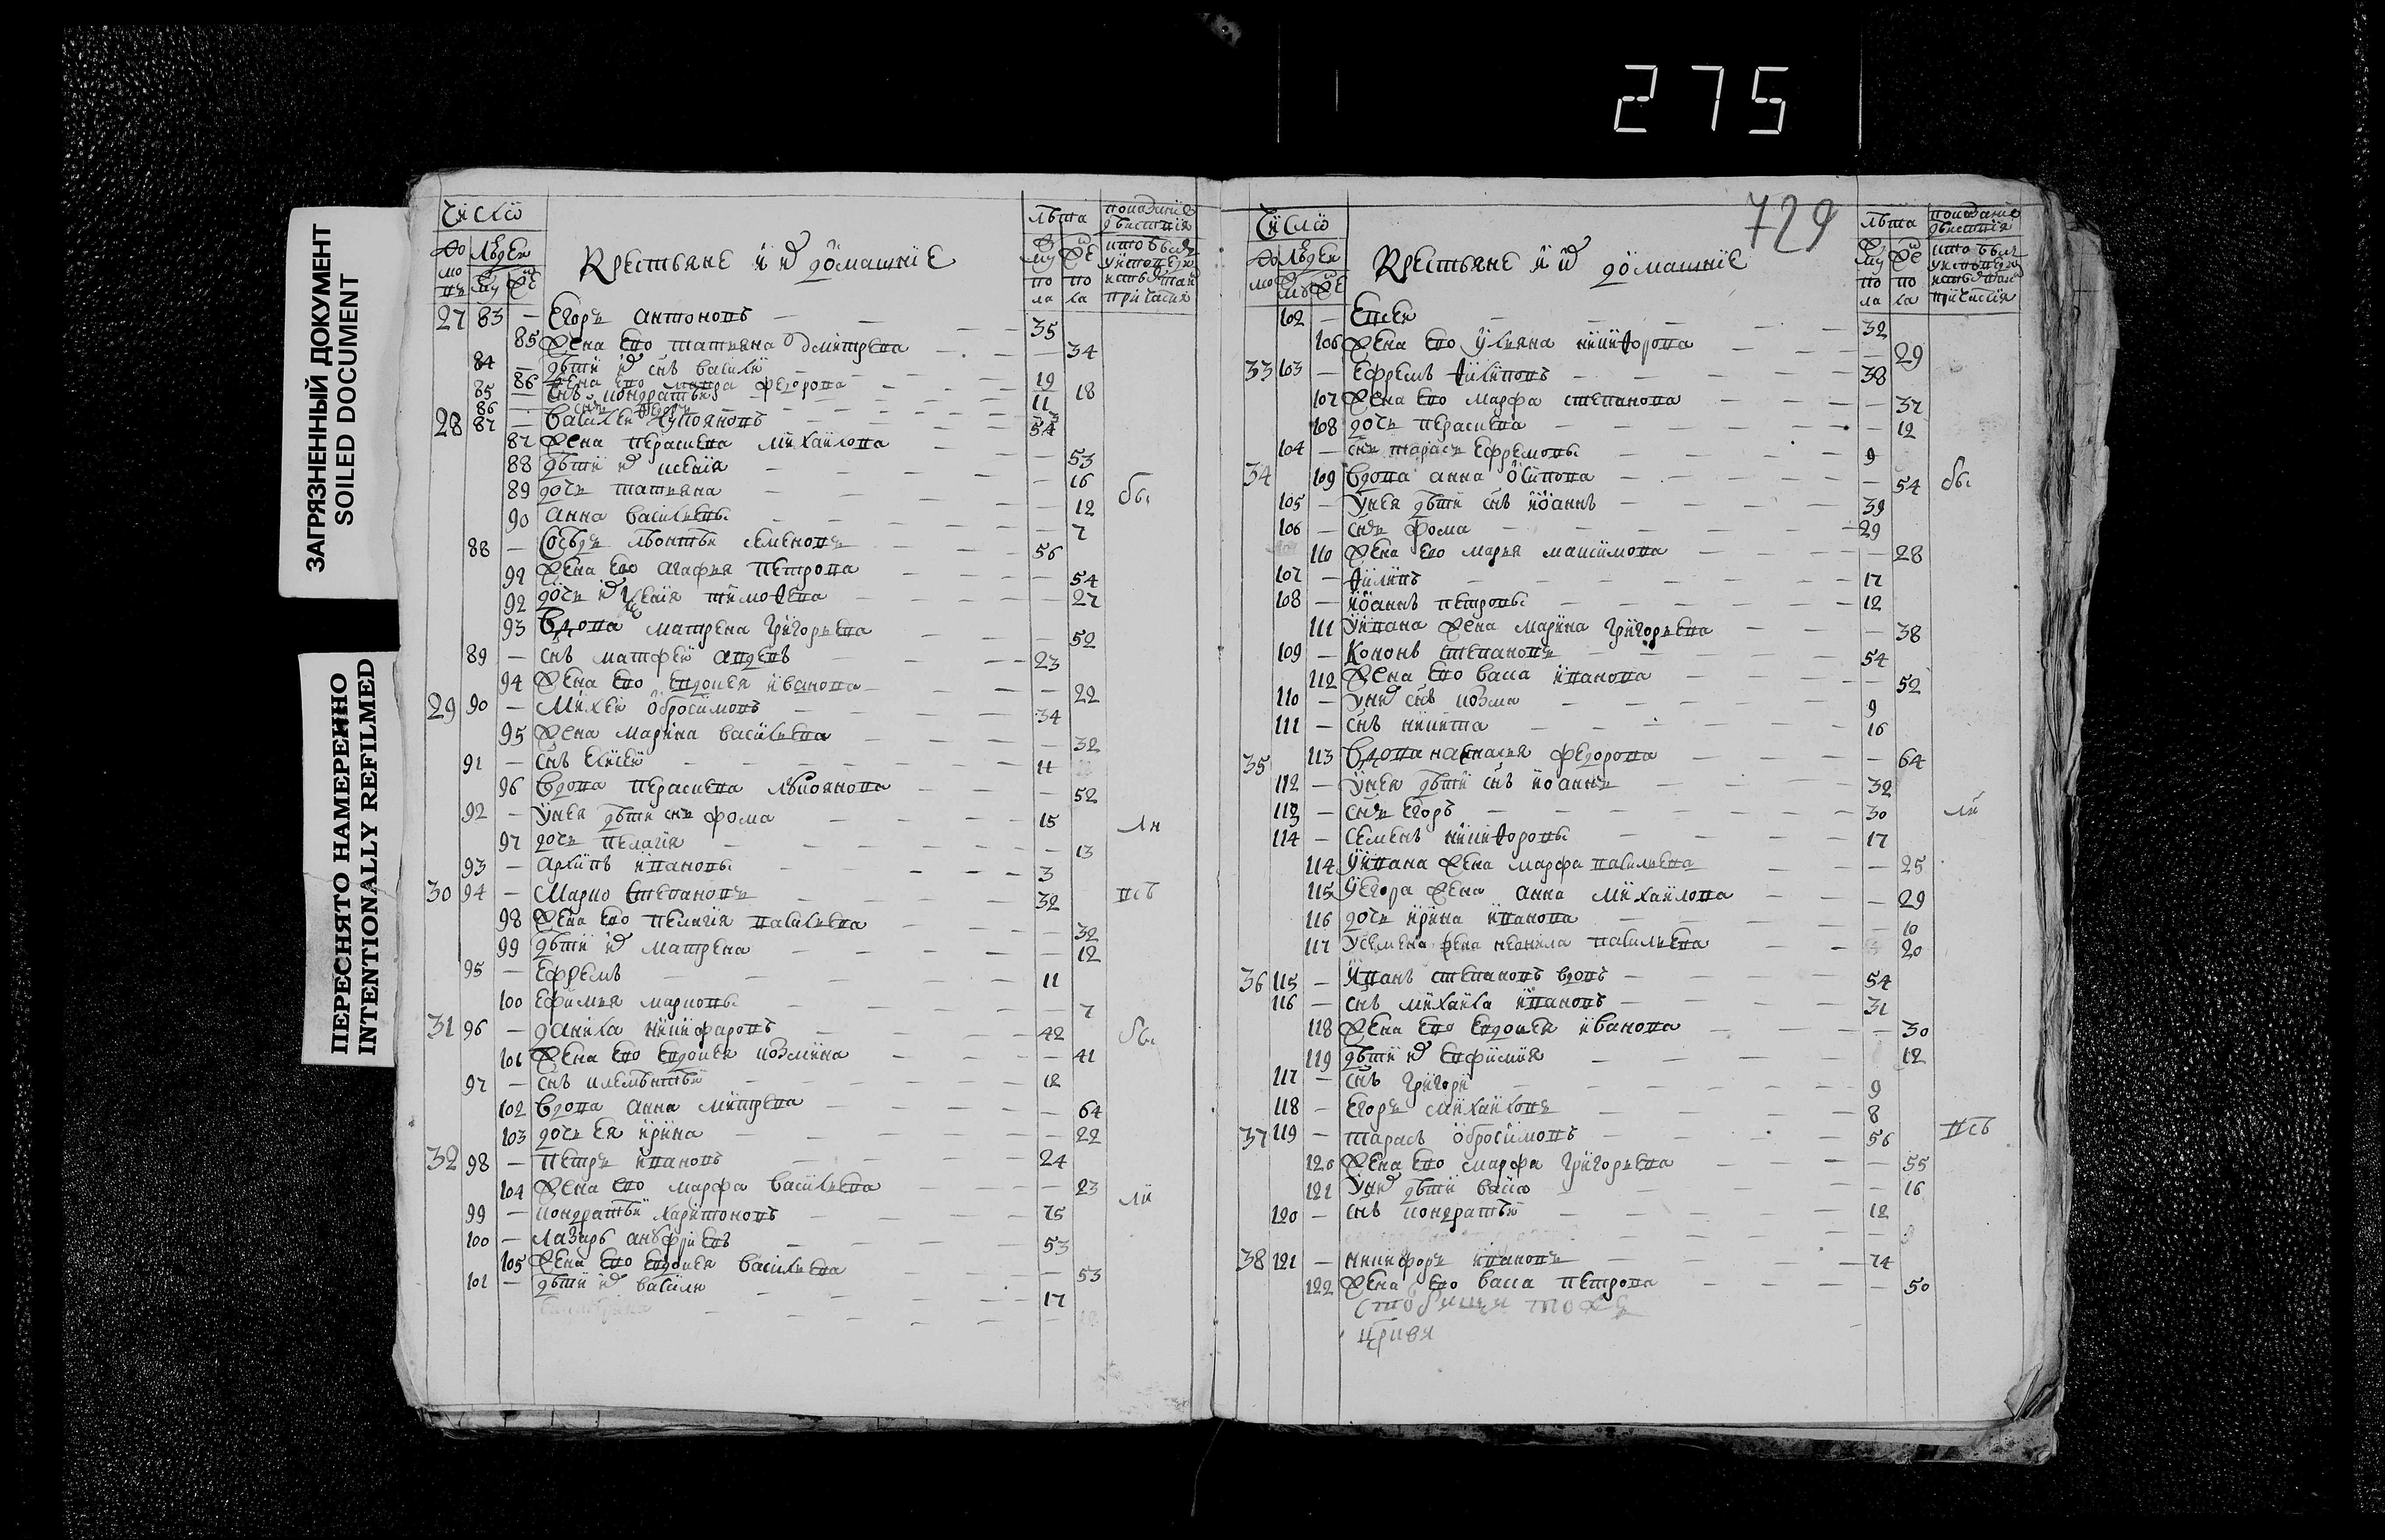 275
ЗАГРЯЗНЕННЫЙ ДОКУМЕНТ
SOILED DOCUMENT
ПЕРЕСНЯТО НАМЕРЕННО
INTENTIONALLY REFILMED
Число
Лѣта
Крестьяне и их домашние
27 83 — Егоръ Антоновъ 35
85 Жена его Татьяна Дмитрева 34
84 — дѣти их снъ Василеи 19
86 Жена его Мавра Федорова 18
85 — снъ Кондратеи 11
86 — снъ Федоръ
28 87 — Василеи Лукояновъ 54
87 Жена Парасκева Михаилова 53
88 дѣти их Ксения 16
89 дочь Татьяна 12 бы
90 Анна Васильевы 7
88 — Сосѣдъ Лѣонтѣи Семеновъ 56
91 Жена его Агафья Петрова 54
92 дочь их Ксения Тимофева 27
93 Вдова Матрена Григорьева 52
89 — снъ Матфеи Авдевъ 23
94 Жена его Евдокея Иванова 22
29 90 — Михеи Обросимовъ 34
95 Жена Марина Васильева 32
91 — снъ Елисеи 11
96 Вдова Перасκева Лѣкоянова 52
92 — У нея дѣти снъ Фома 15 ли
97 дочь Пелагия 13
93 — Архипъ Ивановы 3
30 94 — Марко Степановъ 32 всѣ
98 Жена его Пелагия Васильева 32
99 дѣти их Матрена 12
95 — Ефремъ 11
100 Ефимия Марковы 7
31 96 — Данила Никифаровъ 42 бы
101 Жена его Евдокея Козмина 41
97 — снъ Клемѣнтѣи 12
102 Вдова Анна Митрева 64
103 дочь ея Ирина 22
32 98 — Петръ Ивановъ 24
104 Жена его Марфа Васильева 23 ли
99 — Кондратѣи Харитоновъ 75
100 — Лазарь Анѳфриевъ 53
105 Жена его Евдокея Васильева 53
101 — дѣти их Василеи 17
729
Число
Лѣта
Крестьяне и их домашние
102 — Евсеи 32
106 Жена его Ульяна Никифорова 29
33 103 — Ефремъ Филиповъ 38
107 Жена его Марфа Степанова 37
108 дочь Перасκева 12
104 — снъ Тарасъ Ефремовы 9
34 109 Вдова Анна Осипова 54 бы
105 — У нея дѣти снъ Иоаннъ 39
106 — снъ Фома 29
110 Жена его Марья Максимова 28
107 — Филипъ 17
108 — Иоаннъ Петровы 12
111 У Ивана жена Марина Григорьева 38
109 — Кононъ Степановъ 54
112 Жена его Васса Иванова 52
110 — У них снъ Козма 9
111 — снъ Никита 16
35 113 Вдова Наталия Федорова 64
112 — У нея дѣти снъ Иоаннъ 32
113 — снъ Егоръ 30 ли
114 — Семенъ Никифоровы 17
114 У Ивана жена Марфа Васильева 25
115 У Егора жена Анна Михаилова 29
116 дочь Ирина Иванова 10
117 У Семена жена Неонила Васильева 20
36 115 — Иванъ Степановъ вдовъ 54
116 — снъ Михаила Ивановъ 31
118 Жена его Евдокея Иванова 30
119 дѣти их Евфимия 12
117 — снъ Григори 9
118 — Егоръ Михаиловъ 8
37 119 — Тарасъ Обросимовъ 56 всѣ
120 Жена его Марфа Григорьева 55
121 У них дѣти Васса 16
120 — снъ Кондратѣи 12
38 121 — Никифоръ Ивановъ 74
122 Жена его Васса Петрова 50